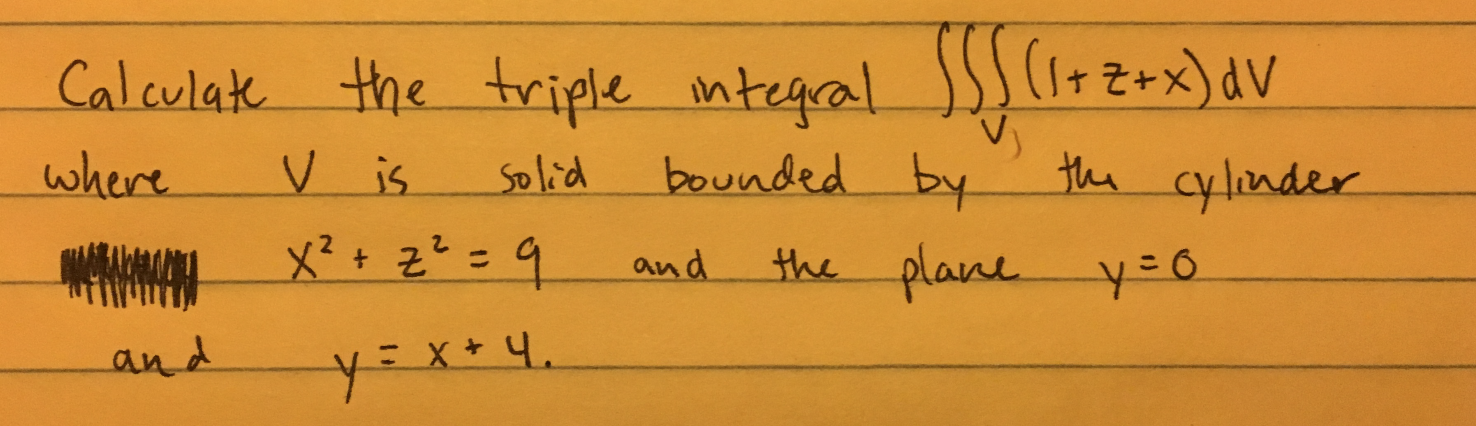 Calculate the triple integral ∭(1+z+x)dV
V,
where V is solid bounded by the cylinder
x² + z² = 9 and the plane y=0
and y = x + 4.